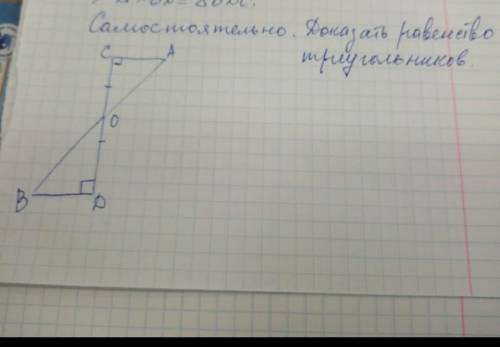 Самостоятельно. Доказать равенство
треугольников.
C A
O
B D